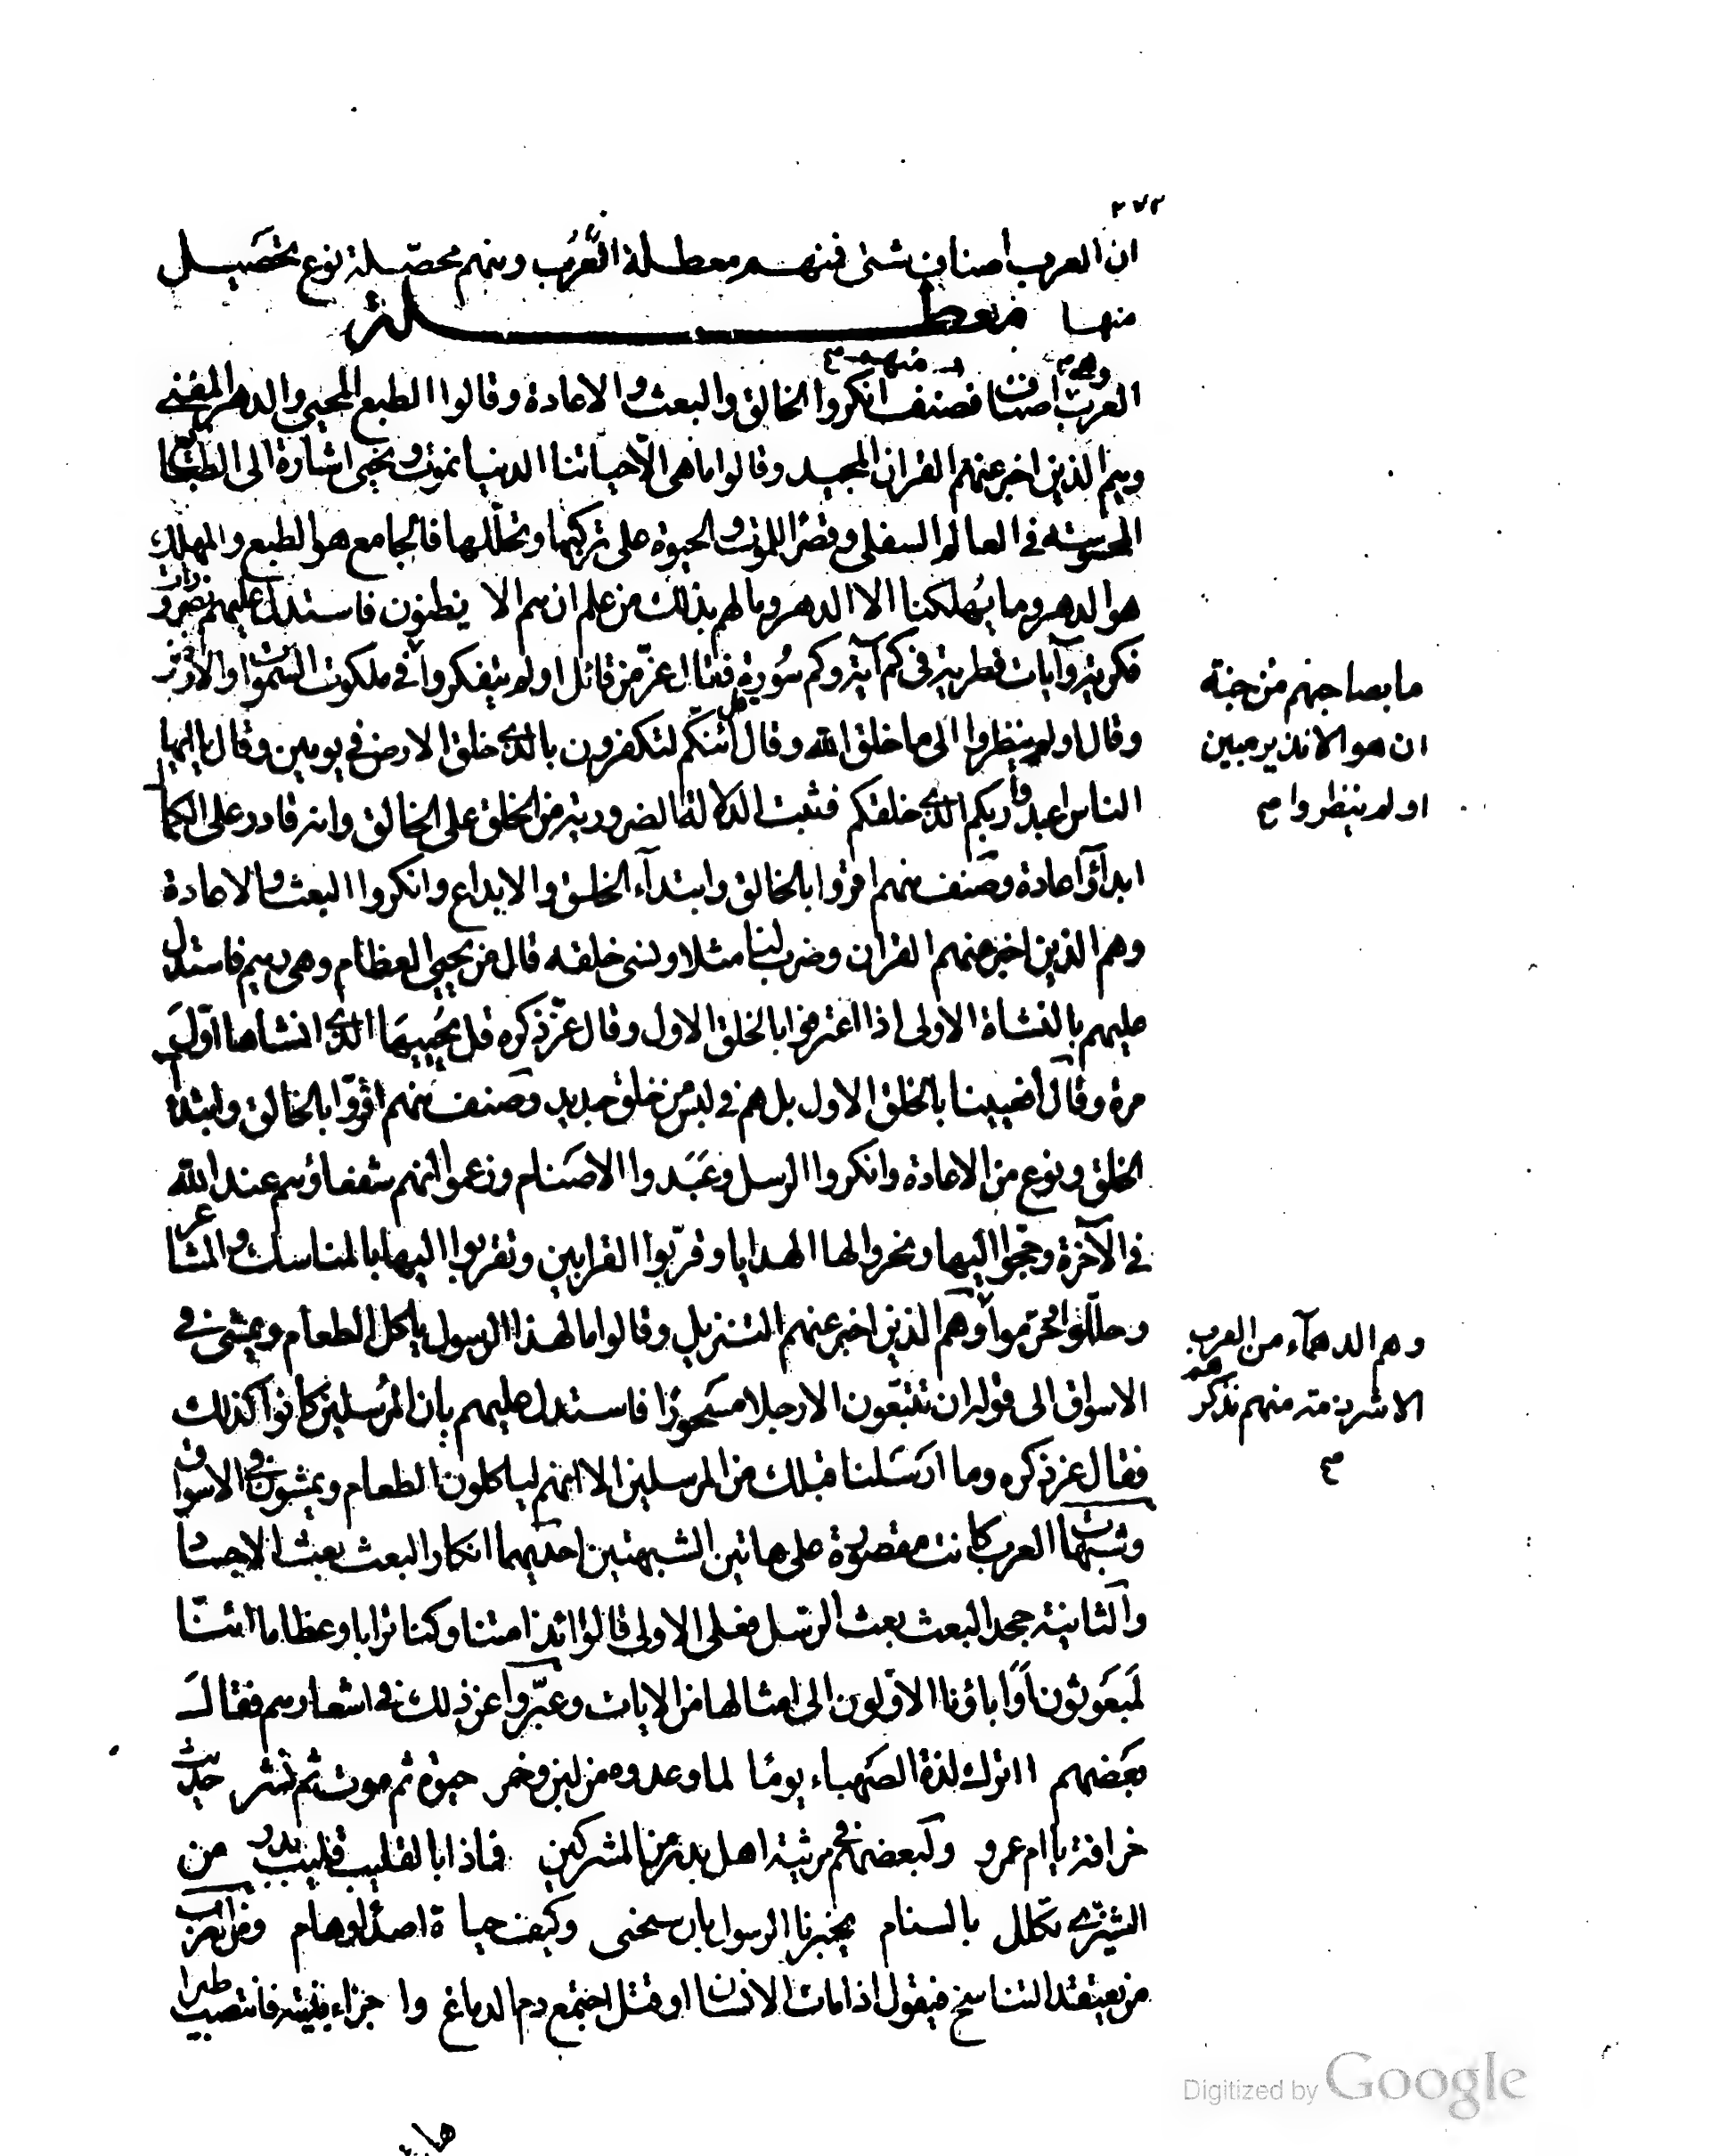 ٢٧٢
ان العرب اصناف شتى فمنهم معطلة العرب ومنهم محصّلة نوع تحصيل
منها معطلة
العرب وهم اصناف فصنف منهم انكروا الخالق والبعث والاعادة وقالوا الطبع المحيي والدهر المفني
وهم الذين اخبر عنهم القران المجيد وقالوا ما هي الا حياتنا الدنيا نموت ونحيي اشارة الى الطبائع
المحسوسة في العالم السفلي وقصرا للموت والحيوة على تركبها وتحللها فالجامع هو الطبع والمهلك
هو الدهر وما يُهلكنا الا الدهر وما لهم بذلك من علم ان هم الا يظنون فاستدل عليهم بضرورات
فكرية وآيات فطرية في كم آية وكم سُورة فقال عزّ من قائل اولم يتفكروا في ملكوت السموات والارض
ما بصاحبهم من جنة
ان هو الا نذير مبين
اولم ينظروا صح
وقال اولم ينظروا الى ما خلق الله وقال قل أئنكم لتكفرون بالذي خلق الارض في يومين وقال يا ايها
الناس اعبدوا ربكم الذي خلقكم فثبت الدلالة الضرورية من الخلق على الخالق وانه قادر على الكمال
ابداءً واعادة وصنف منهم اقروا بالخالق وابتداء الخلق والابداع وانكروا البعث والاعادة
وهم الذين اخبر عنهم القران وضرب لنا مثلا ونسى خلقه قال من يحيي العظام وهي رميم فاستدل
عليهم بالنشاة الاولى اذا اعترفوا بالخلق الاول وقال عزّ ذكره قل يُحييهَا الذي انشاها اوّلَ
مرة وقال افعيينا بالخلق الاول بل هم في لبس من خلق جديد وصنف منهم اقرّوا بالخالق وابتداء
الخلق ونوع من الاعادة وانكروا الرسل وعَبَدوا الاصنام وزعموا انهم شفعاؤهم عند الله
في الآخرة وحجوا اليها ونحروا لها الهدايا وقرّبوا القرابين وتقربوا اليها بالمناسك والمشاعر
وحللوا وحرّموا وهم الذين اخبر عنهم التنزيل وقالوا ما لهذا الرسول ياكل الطعام ويمشي في
وهم الدهماء من العرب
الا شرذمة منهم نذكرهم
صح
الاسواق الى قوله ان تتبّعون الا رجلا مسحورًا فاستدل عليهم بان المُرسلين كانوا كذلك
فقال عز ذكره وما ارسَلنا قبلك من المرسلين الا انهم لياكلون الطعام ويمشون في الاسواق
وشبهات العرب كانت مقصورة على هاتين الشبهتين احديهما انكار البعث بعث الاجساد
والثانية جحد البعث بعث الرسل فعلى الاولى قالوا ائذا متنا وكنا ترابا وعظاما ائنّا
لَمبعوثون اوَاباؤنا الاوّلون الى امثالها من الايات وعبّروا عن ذلك في اشعارهم فقال
بعضهم ااترك لذة الصهباء يومًا لما وعدوه من لبن وخمر حيوة ثم موت ثم نشر حديث
خرافة يا ام عمرو ولبعضهم في مرثية اهل بدر من المشركين فماذا بالقليب قليب بدر من
الشيزى تكلل بالسنام يخبرنا الرسول بان سنحيى وكيف حياة اصداء وهام ومن العرب
من يعتقد التناسخ فيقول اذا مات الانسان او قتل اجتمع دم الدماغ واجزاء بنيته فانتصب طيرا